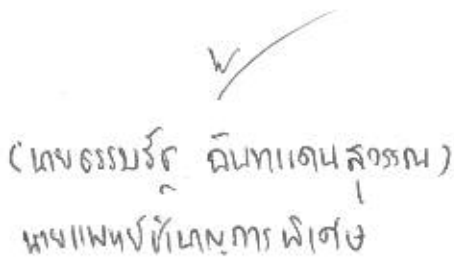 (นายธรรมรัฐ ฉันทแดนสุวรรณ)
นายแพทย์ชำนาญการพิเศษ